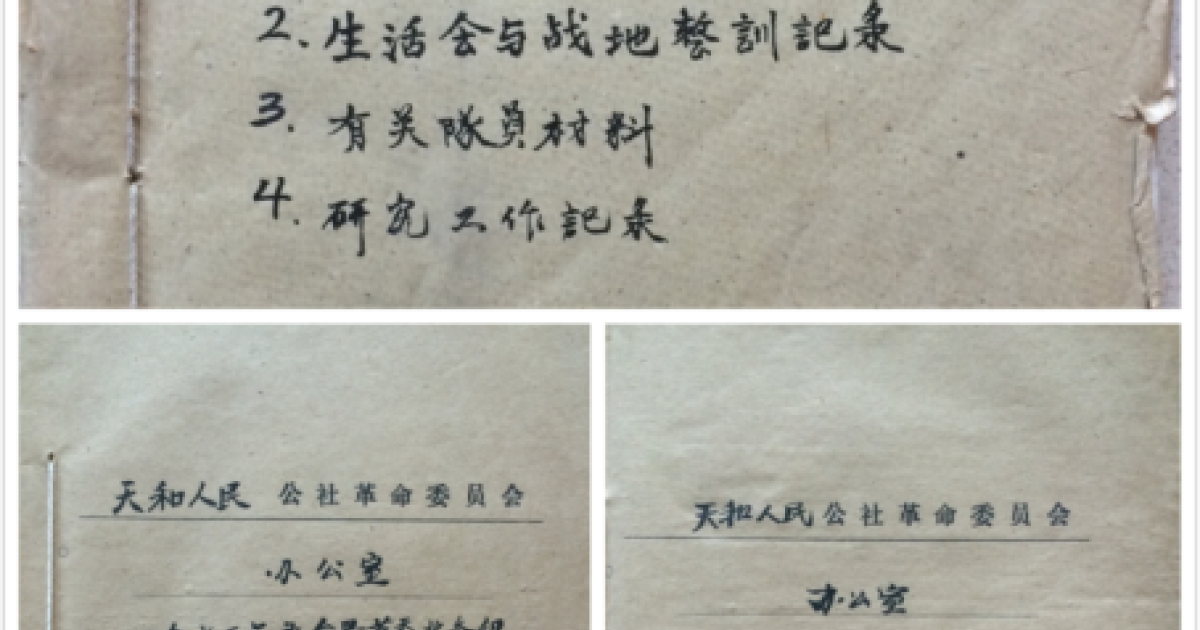 2. 生活会与战地整訓記录
3. 有关隊員材料
4. 研究工作記录
天和人民 公社革命委员会
办公室
天和人民公社革命委员会
办公室